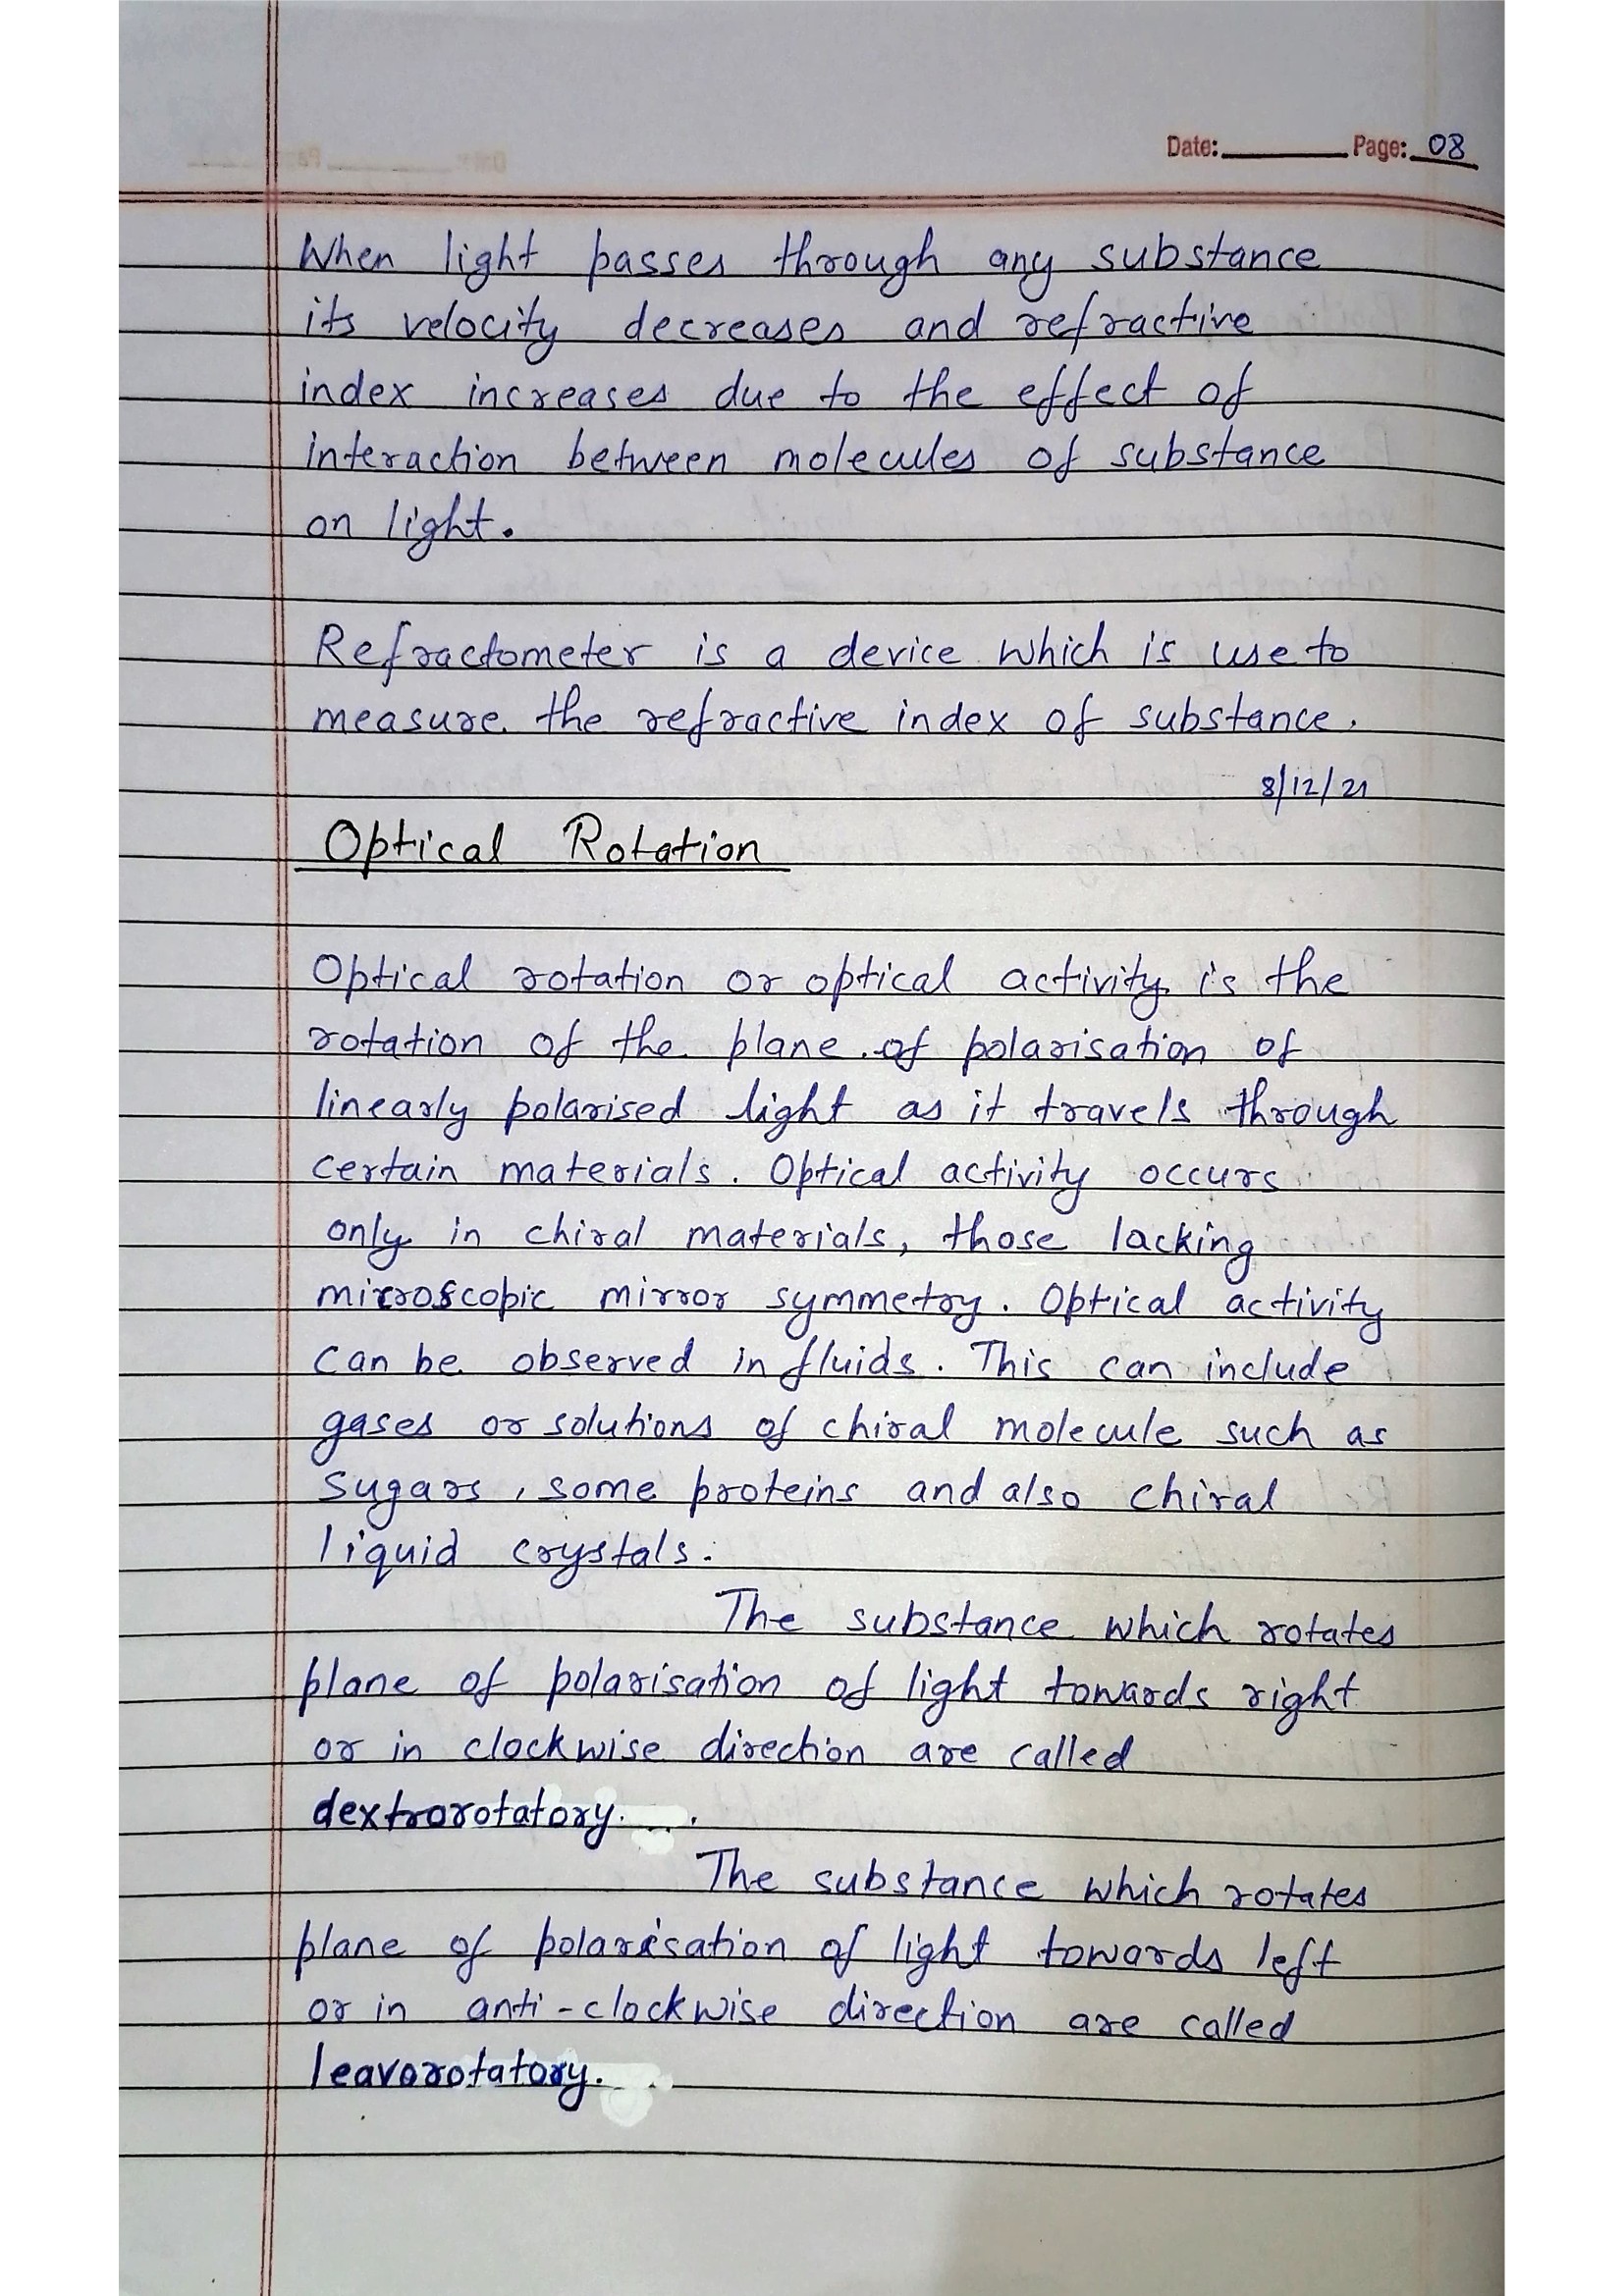 Date: Page: 08
When light passes through any substance
its velocity decreases and refractive
index increases due to the effect of
interaction between molecules of substance
on light.
Refractometer is a device which is use to
measure the refractive index of substance.
8/12/21
Optical Rotation
Optical rotation or optical activity is the
rotation of the plane of polarisation of
linearly polarised light as it travels through
certain materials. Optical activity occurs
only in chiral materials, those lacking
microscopic mirror symmetry. Optical activity
can be observed in fluids. This can include
gases or solutions of chiral molecule such as
sugars, some proteins and also chiral
liquid crystals.
The substance which rotates
plane of polarisation of light towards right
or in clockwise direction are called
dextrorotatory.
The substance which rotates
plane of polarisation of light towards left
or in anti-clockwise direction are called
leavorotatory.